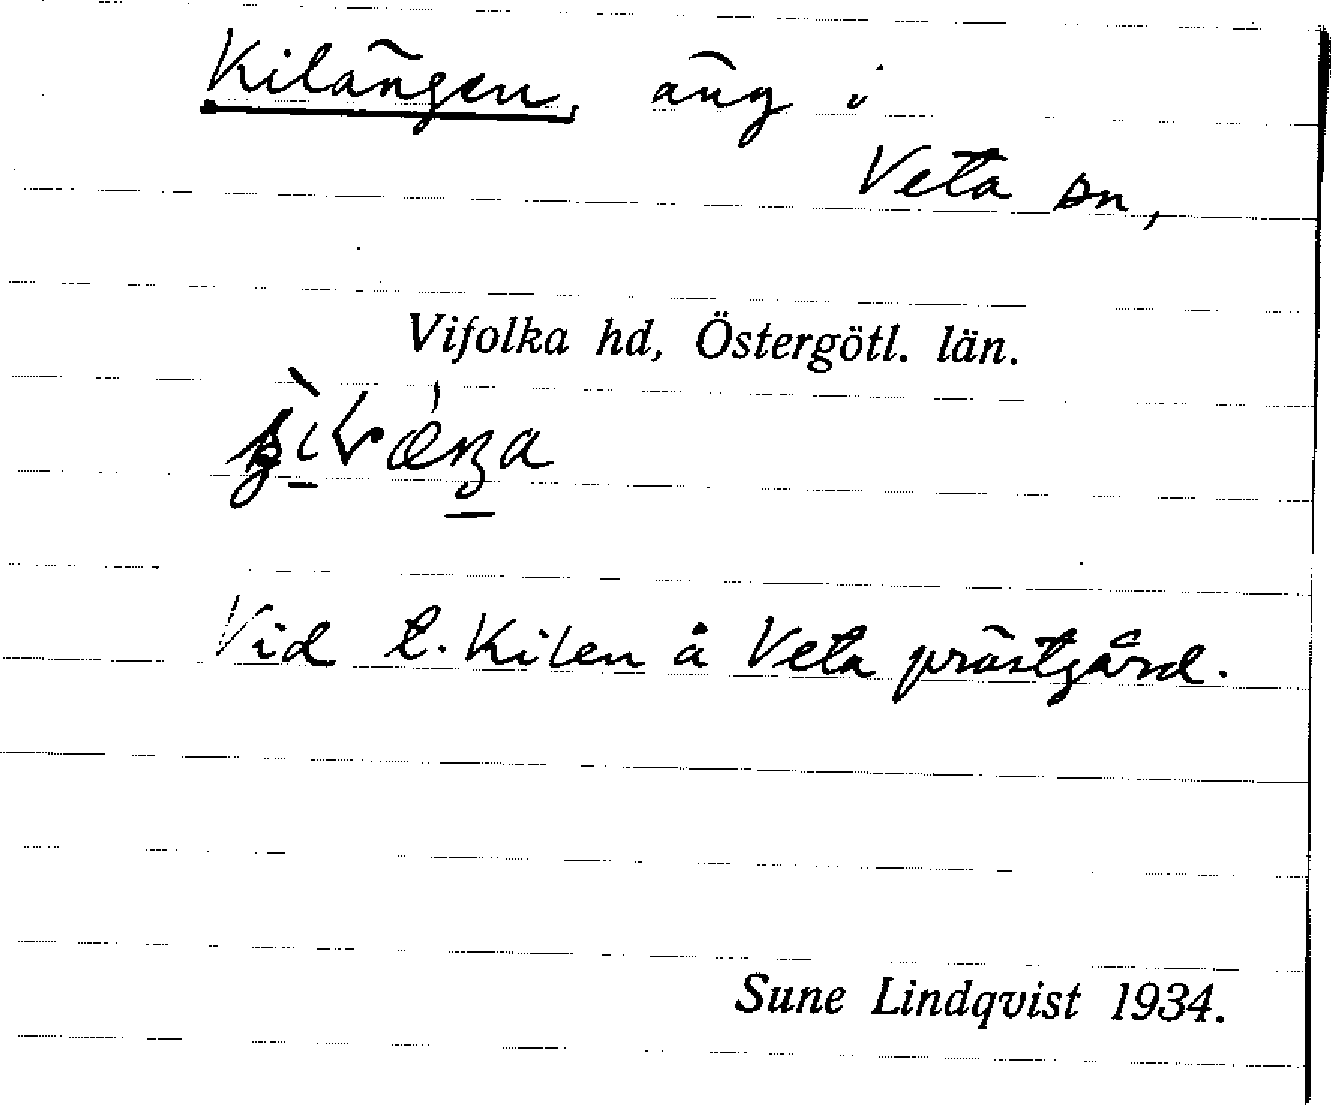 Kilängen, äng i
Veta sn,
Vifolka hd, Östergötl. län.
Vid t. Kilen å Veta prästgård.
Sune Lindqvist 1934.